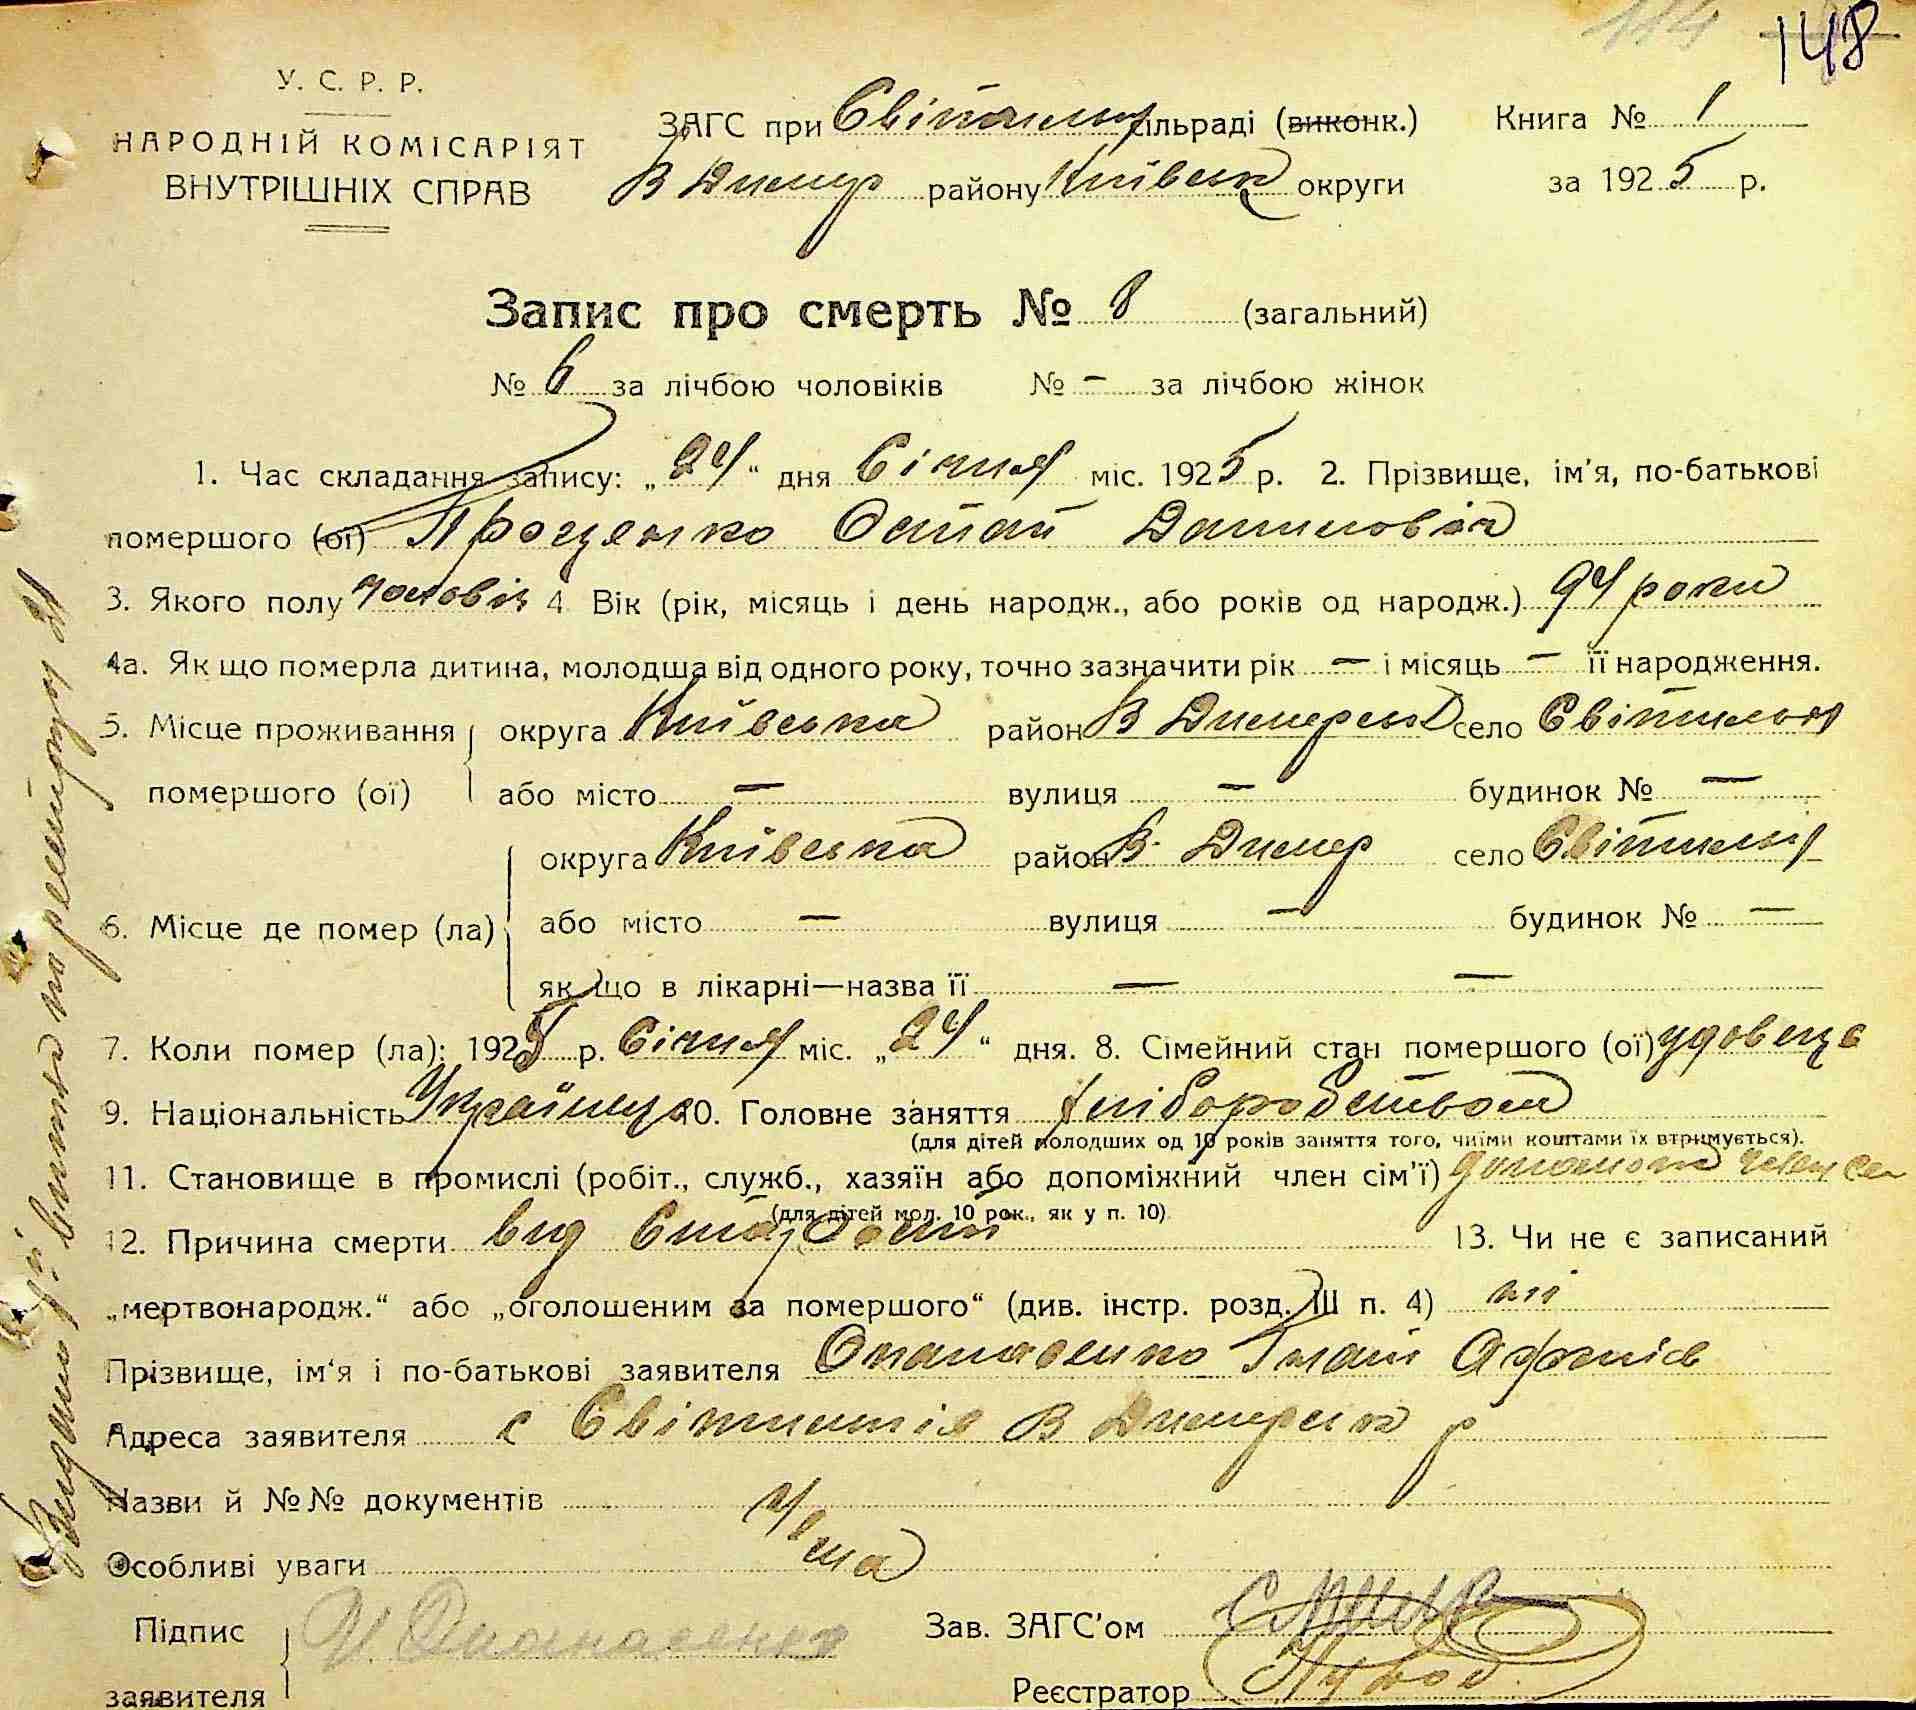 148
У. С. Р. Р.
НАРОДНІЙ КОМІСАРІЯТ
ВНУТРІШНІХ СПРАВ
ЗАГС при Світильн сільраді (виконк.) Книга № 1
В Димер району Київськ округи за 1925 р.
Запис про смерть № 8 (загальний)
№ 6 за лічбою чоловіків № — за лічбою жінок
1. Час складання запису: „24“ дня Січня міс. 1925 р. 2. Прізвище, ім'я, по-батькові
помершого (ої) Проценко Остап Данилович
3. Якого полу чоловіч 4 Вік (рік, місяць і день народж., або років од народж.) 94 роки
4а. Як що померла дитина, молодша від одного року, точно зазначити рік — і місяць — її народження.
5. Місце проживання округа Київська район В Димерськ село Світильня
помершого (ої) або місто — вулиця — будинок № —
округа Київська район В. Димер село Світильн
6. Місце де помер (ла) або місто — вулиця — будинок № —
як що в лікарні—назва її — —
7. Коли помер (ла): 1925 р. Січня міс. „24“ дня. 8. Сімейний стан помершого (ої) удовець
9. Національність Українець 10. Головне заняття хліборобством
(для дітей молодших од 10 років заняття того, чиїми коштами їх втримується).
11. Становище в промислі (робіт., служб., хазяїн або допоміжний член сім'ї)
(для дітей мол. 10 рок., як у п. 10)
12. Причина смерти від старости 13. Чи не є записаний
„мертвонародж.“ або „оголошеним за помершого“ (див. інстр. розд. III п. 4) ні
Прізвище, ім'я і по-батькові заявителя Опанасенко
Адреса заявителя с Світильнів В Димерськ р
Назви й №№ документів
Нема
Особливі уваги
Підпис Опанасенко Зав. ЗАГС'ом
заявителя Реєстратор